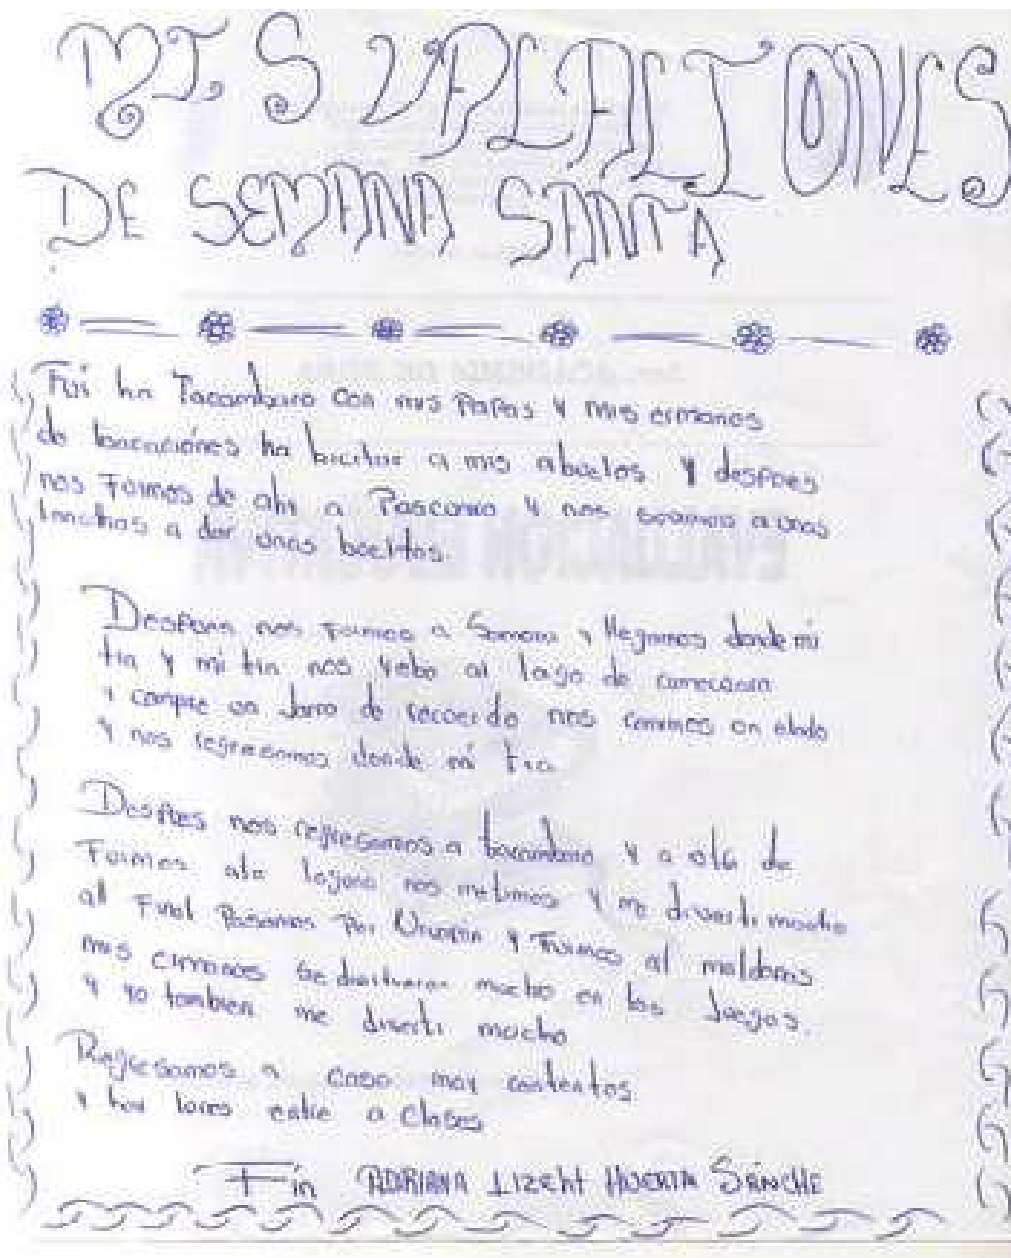 MIS VACACIONES
DE SEMANA SANTA
Fui ha Tacambaro con mis Papas y mis ermanos
de bacaciónes ha bicitar a mis abuelos y despues
nos Fuimos de ahi a Pascuaro y nos a unas
lanchas a dar unas bueltas.
Despues nos Fuimos a Samora y llegamos donde mi
tia y mi tia nos yebo al lago de camecuaro
y compre un Jarro de recuerdo nos comimos un elado
y nos regresamos donde mi tia
Despues nos regresamos a tacambaro y a ola de
Fuimos ala laguna nos metimos y me diverti mucho
al Final Pasamos Por Uruapan y Fuimos al maldonas
mis ermanos se divirtieron mucho en los Juegos.
y yo tambien me diverti mucho
Regresamos a casa muy contentos
y hoy lunes entre a clases
Fin ADRIANA LIZEht HUERTA SANCHE